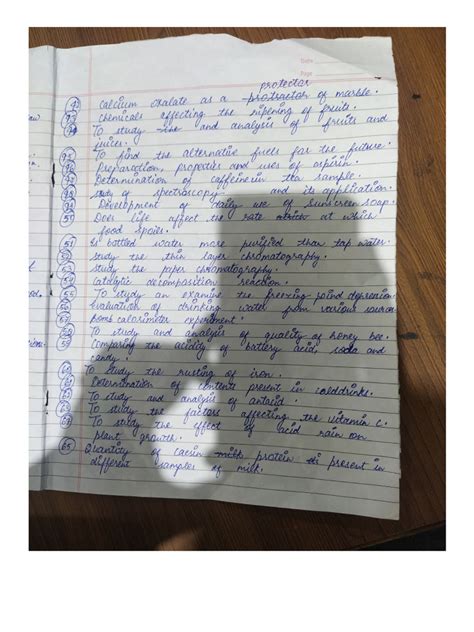 Date
Page
protector
42 Calcium oxalate as a protractor of marble.
43 Chemicals effecting the ripening of fruits.
44 To study and analysis of fruits and
juices.
To find the alternative fuels for the future.
Preparation, properties and uses of aspirin.
Determination of caffeine in tea sample.
study of spectroscopy and its application.
Development of daily use of sunscreen soap.
50 Does life affect the rate at which
food spoils.
51 Is bottled water more purified than tap water.
study the thin layer chromatography.
study the paper chromatography.
Catalytic decomposition reaction.
To study an examine the freezing point depression
evaluation of drinking water from various sources
bomb calorimeter experiment.
To study and analysis of quality of honey bee.
59 Comparing the acidity of battery acid, soda and
candy.
60 To study the rusting of iron.
61 Determination of contents present in colddrinks.
To study and analysis of antacid.
To study the factors affecting the vitamin C.
To study the effect of acid rain on
plant growth.
65 Quantity of casein milk protein present in
different samples of milk.